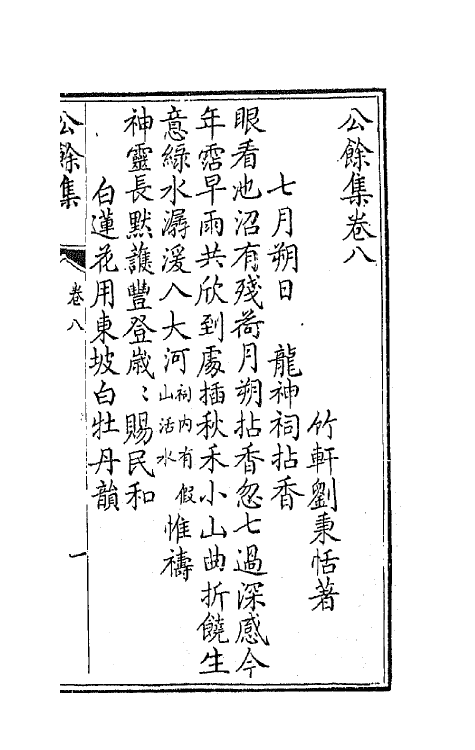 公餘集卷八
竹軒劉秉恬著
七月朔日 龍神祠拈香
眼看池沼有殘荷月朔拈香忽七過深感今
年霑早雨共欣到處插秋禾小山曲折饒生
意綠水潺湲入大河祠內有假山活水惟禱
神靈長默護豐登歲〻賜民和
白蓮花用東坡白牡丹韻
公餘集
卷八
一